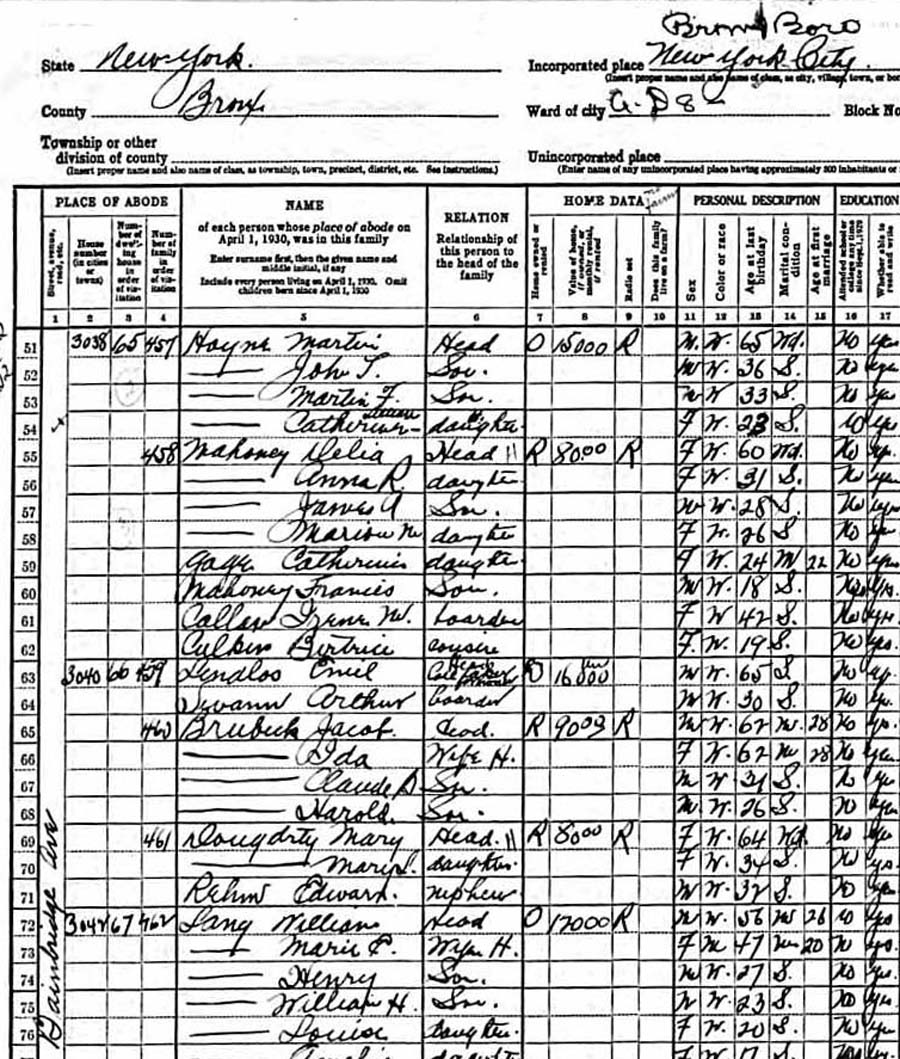 Bronx Boro
State New York.
Incorporated place New York City.
(Insert proper name and also name of class, as city, village, town, or bor
County Bronx
Ward of city A.D 8 Block No
Township or other
division of county
(Insert proper name and also name of class, as township, town, precinct, district, etc. See instructions.)
Unincorporated place
(Enter name of any unincorporated place having approximately 500 inhabitants or
PLACE OF ABODE
Street, avenue, road, etc.
House number (in cities or towns)
Number of dwelling house in order of visitation
Number of family in order of visitation
NAME
of each person whose place of abode on
April 1, 1930, was in this family
Enter surname first, then the given name and
middle initial, if any
Include every person living on April 1, 1930. Omit
children born since April 1, 1930
RELATION
Relationship of
this person to
the head of the
family
HOME DATA
Home owned or rented
Value of home, if owned, or monthly rental, if rented
Radio set
Does this family live on a farm?
PERSONAL DESCRIPTION
Sex
Color or race
Age at last birthday
Marital condition
Age at first marriage
EDUCATION
Attended school or college any time since Sept. 1, 1929
Whether able to read and write
1 2 3 4 5 6 7 8 9 10 11 12 13 14 15 16 17
51 3038 65 457 Martin Head O 15000 R M. W. 65 Wd. No yes
52 John T. Son. M W. 36 S. No yes
53 Martin F. Son. M W 33 S. No yes
54 Catherine daughter F W. 23 S. No yes
55 458 Mahoney Delia Head H R 8000 R F W. 60 Wd. No yes
56 Anna R. daughter F W. 31 S. No yes
57 James A Son. M W. 28 S. No yes
58 Marion daughter F W. 26 S No yes
59 Catherine daughter F W. 24 M 22 No yes
60 Mahoney Francis Son. M W. 18 S. yes
61 Irene W. boarder F W 42 S. No yes.
62 F. W. 19 S. No yes.
63 3040 66 459 Emil O 16000 M W. 65 S No yes
64 Arthur boarder M W. 30 S. No yes
65 460 Jacob. Head. R 9000 R M W. 62 M. 28 No yes.
66 Ida Wife H. F W. 62 M 28 No yes
67 Claude Son. M W 31 S. No yes
68 Harold. Son. M. W. 26 S. No yes
69 461 Mary Head. H R 8000 R F W. 64 Wd. No yes
70 daughter. F W. 34 S. No yes.
71 Edward. nephew M W. 32 S. No yes
72 3042 67 462 Lang William Head O 17000 R M W. 56 M 26 No yes
73 Marie E. Wife H. F 47 M 20 No yes.
74 Henry Son. M W. 27 S. No yes.
75 William H. Son. M W. 23 S. No yes.
76 Louise daughter. F W. 20 S. No yes
Bainbridge Ave